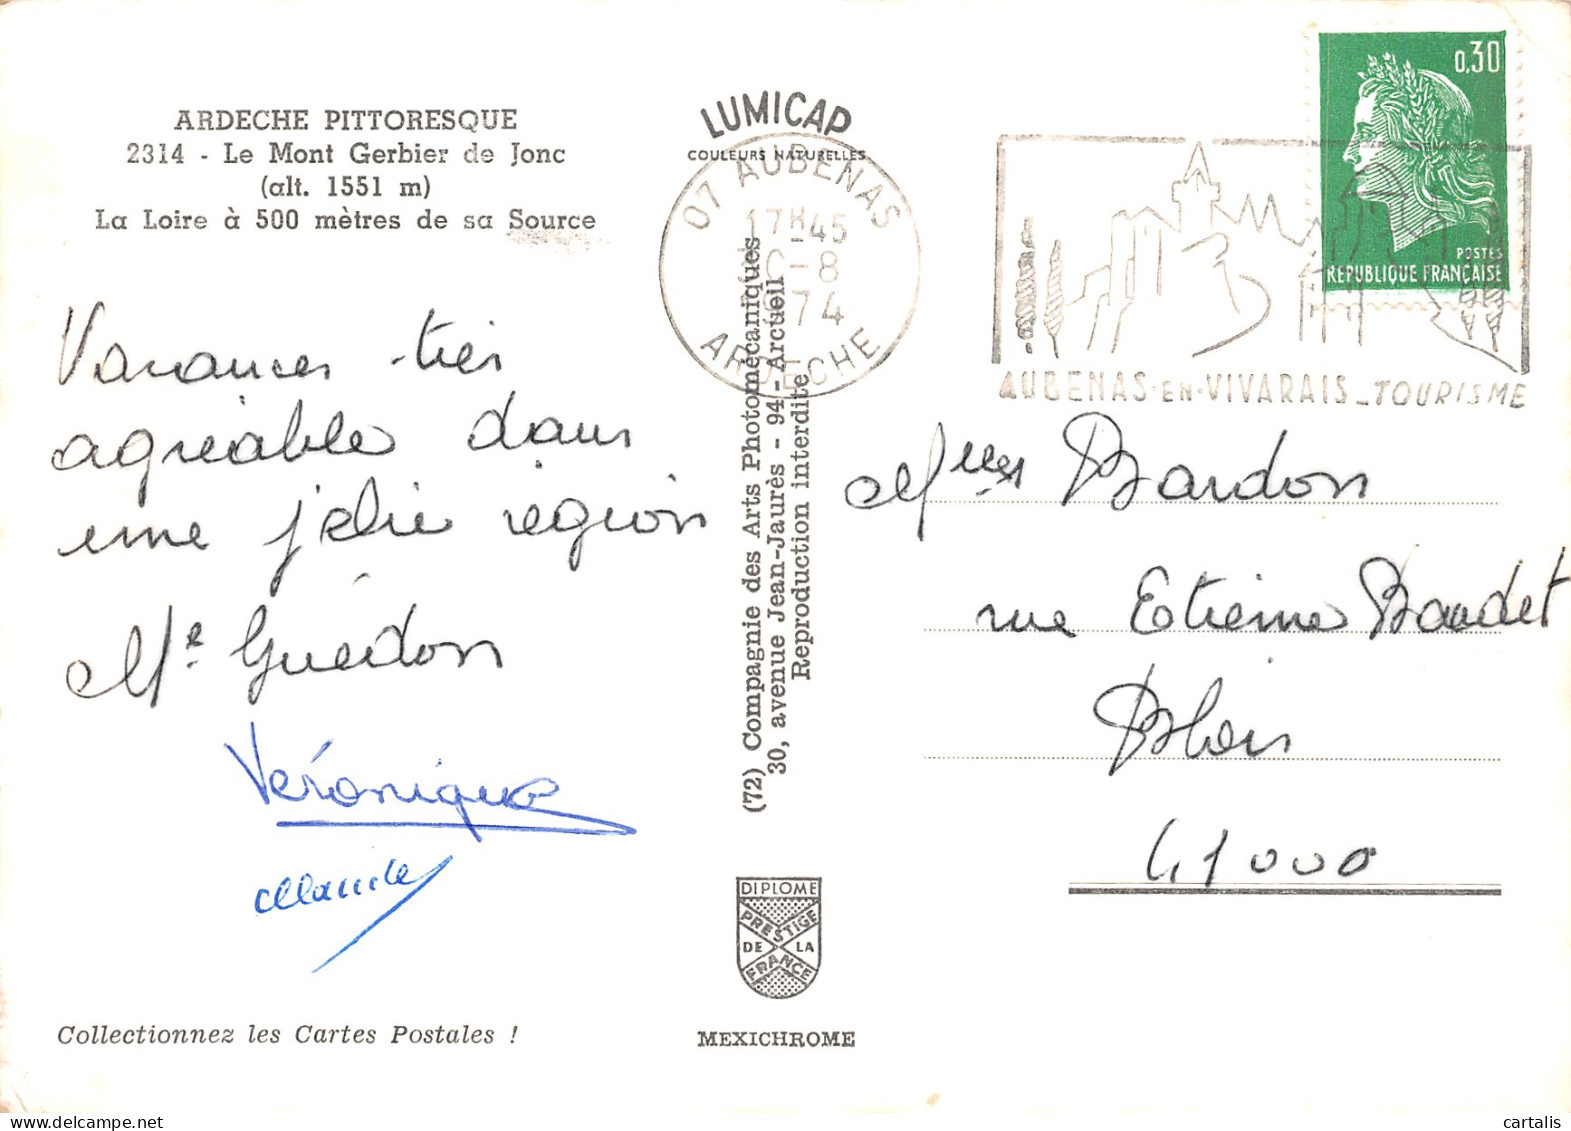 ARDECHE PITTORESQUE
2314 - Le Mont Gerbier de Jonc
(alt. 1551 m)
La Loire à 500 mètres de sa Source
Vacances très
agréable dans
une jolie région
Me Guédon
Véronique
Claude
Collectionnez les Cartes Postales !
LUMICAP
COULEURS NATURELLES
07 AUBENAS
17H45
-8
74
ARDECHE
(72) Compagnie des Arts Photomécaniques
30, avenue Jean-Jaurès - 94 - Arcueil
Reproduction interdite
DIPLOME
PRESTIGE
DE LA
FRANCE
MEXICHROME
0,30
POSTES
REPUBLIQUE FRANÇAISE
AUBENAS-EN-VIVARAIS-TOURISME
Mmes Bardon
rue Etienne Baudet
Blois
41000
cartalis